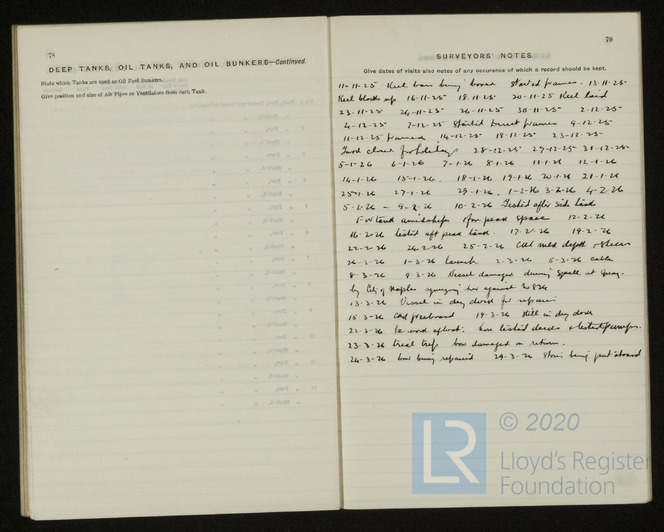 78
DEEP TANKS, OIL TANKS, AND OIL BUNKERS—Continued.
State which Tanks are used as Oil Fuel Bunkers.
Give position and size of Air Pipes or Ventilators from each Tank.
79
SURVEYORS' NOTES.
Give dates of visits also notes of any occurence of which a record should be kept.
11-11-25 Keel being Started frames. 13-11-25
Keel blocks up 16-11-25 18-11-25 20-11-25 Keel laid
23-11-25 24-11-25 26-11-25 30-11-25 2-12-25
4-12-25 7-12-25 Started frames 9-12-25
11-12-25 framed 14-12-25 18-12-25 23-12-25
Yard closed for holidays 28-12-25 29-12-25 31-12-25
5-1-26 6-1-26 7-1-26 8-1-26 11-1-26 12-1-26
14-1-26 15-1-26 18-1-26 19-1-26 20-1-26 21-1-26
25-1-26 27-1-26 29-1-26 1-2-26 3-2-26 4-2-26
5-2-26 - 9-2-26 10-2-26 Tested after side tank
F W tank amidships & fore peak space 12-2-26
16-2-26 tested aft peak tank. 17-2-26 19-2-26
22-2-26 24-2-26 25-2-26 Ckd mld depth & sheer
26-2-26 1-3-26 launch 2-3-26 5-3-26 cable
8-3-26 9-3-26 Vessel damaged during at quay.
by City of Naples her against
13-3-26 Vessel in dry dock for repairs
15-3-26 Ckd freeboard 19-3-26 still in dry dock
22-3-26 work afloat. hose tested decks & tested pumps.
23-3-26 trial trip bow damaged on return.
24-3-26 bow being repaired 29-3-26 Stores being put aboard
LR
© 2020
Lloyd's Register
Foundation